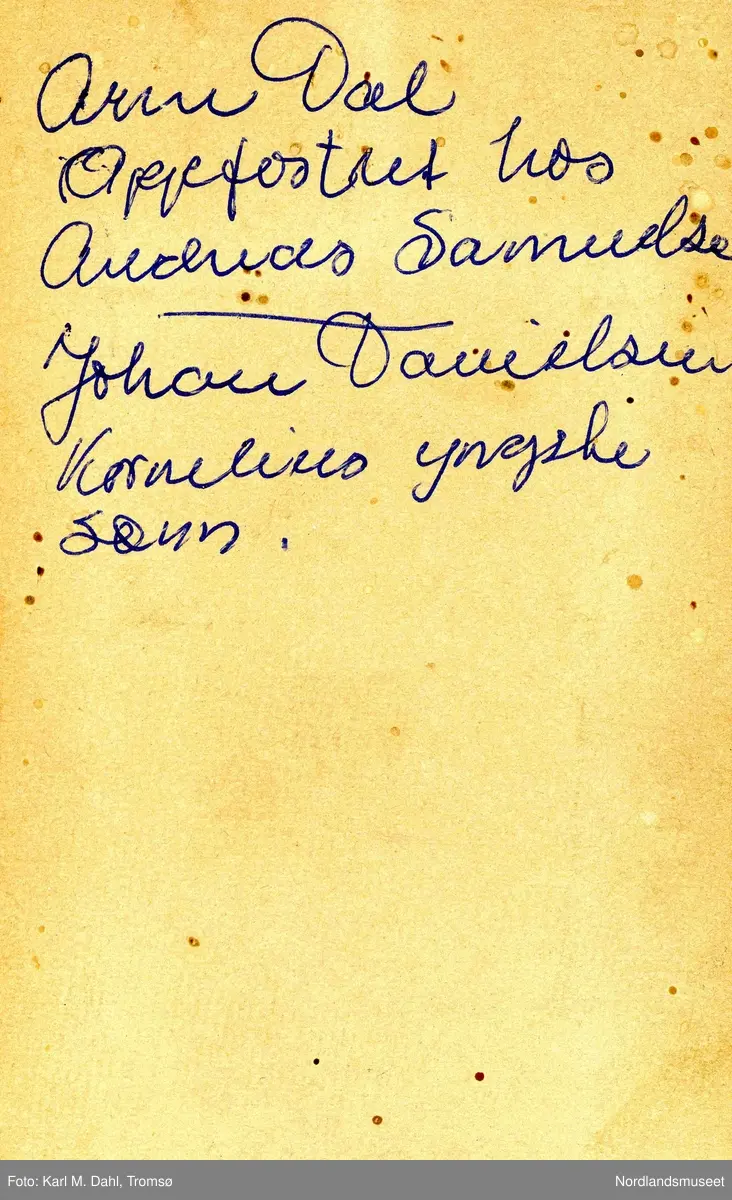 Arne Dal
Oppfostret hos
Andreas Samuelse
Johan Danielsen
Kornelius yngste
sønn.
Foto: Karl M. Dahl, Tromsø
Nordlandsmuseet